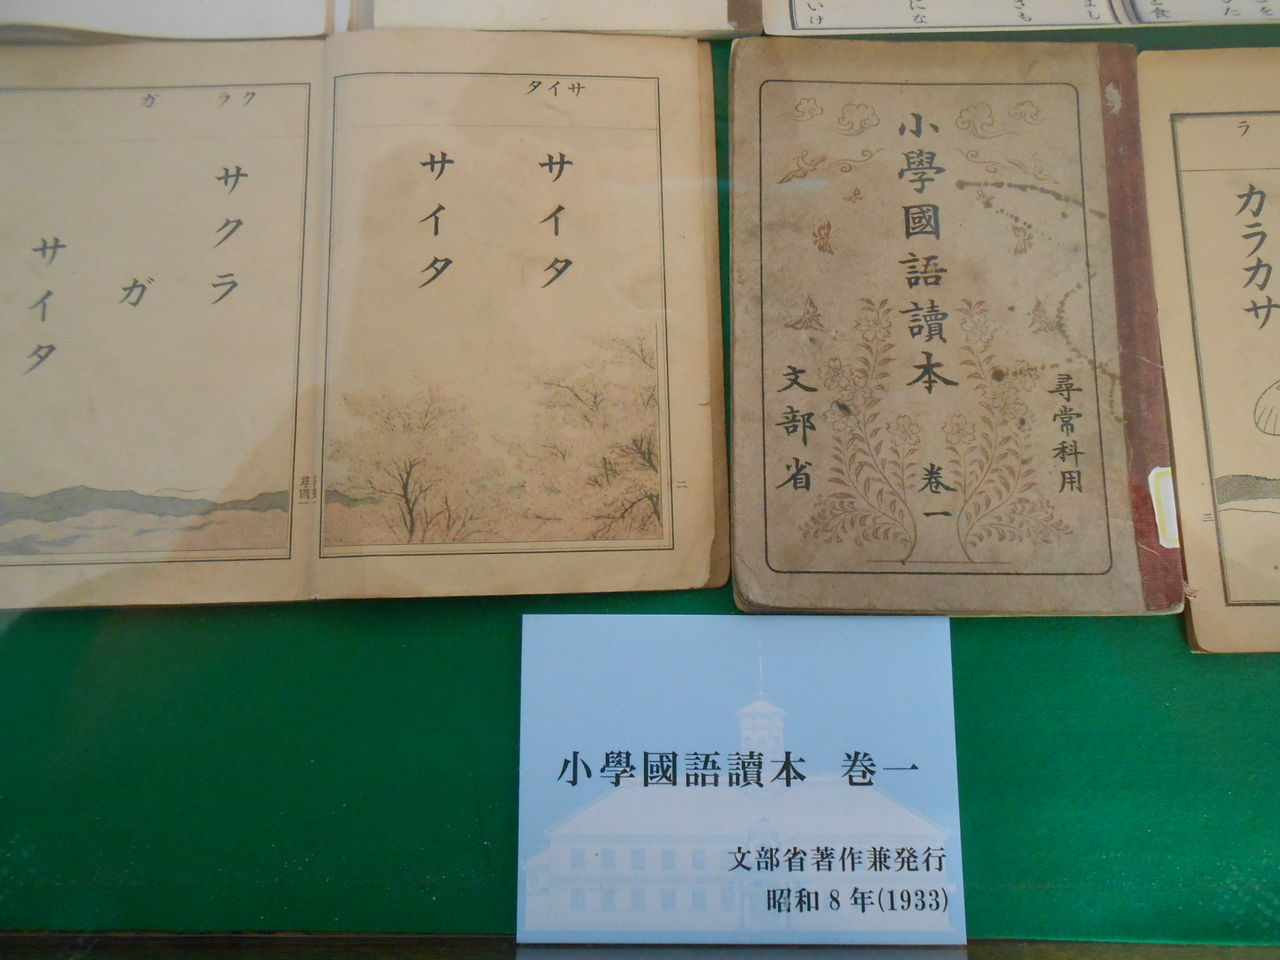 サイタ
サイタ
サイタ
クラ
ガ
サクラ
ガ
サイタ
尋國一
二
小學國語讀本
卷一
尋常科用
文部省
ラ
カラカサ
三
小學國語讀本 卷一
文部省著作兼発行
昭和8年(1933)